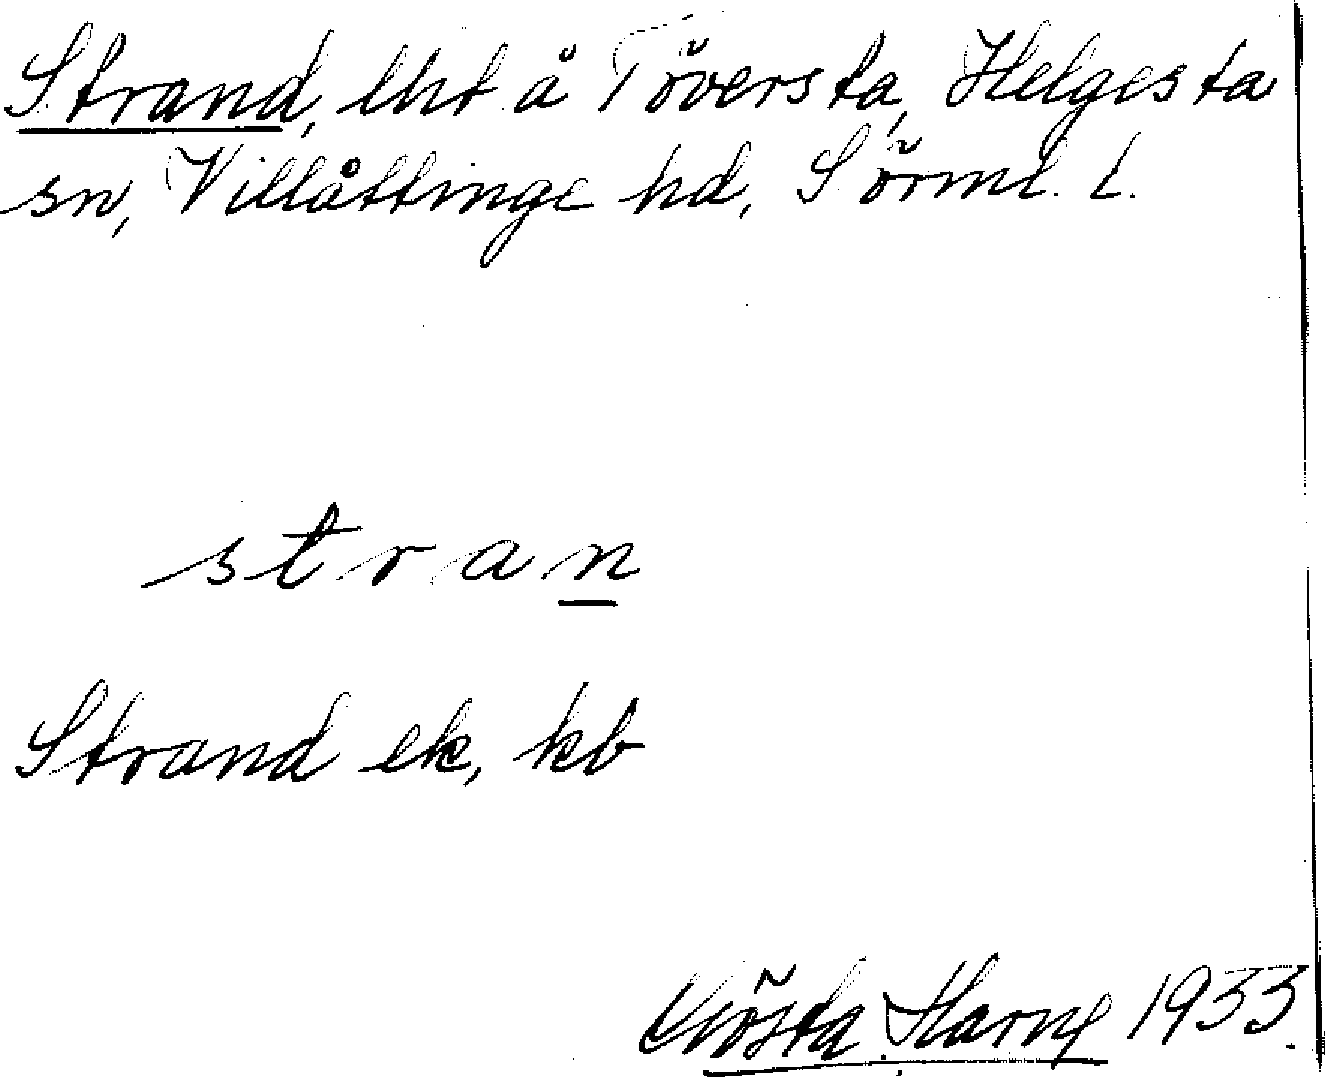 Strand, lht å Töversta, Helgesta
sn, Villåttinge hd, Sörml. l.
stran
Strand ek, kb
Gösta Harng 1933.